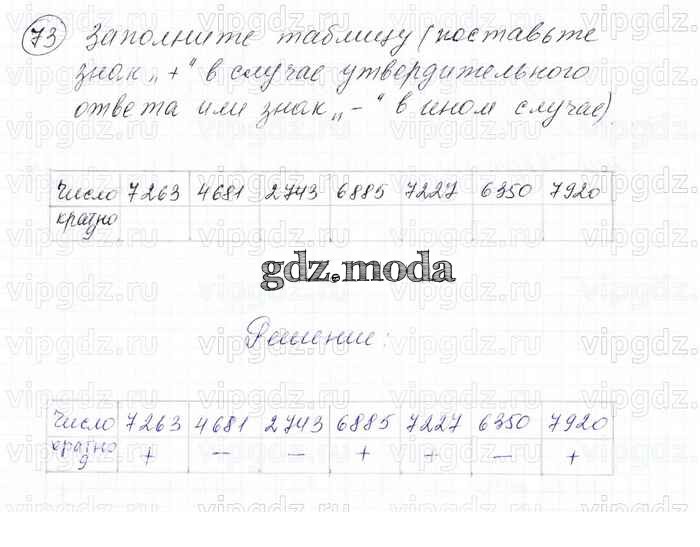 73 Заполните таблицу (поставьте
знак „+“ в случае утвердительного
ответа или знак „-“ в ином случае)
Число 7263 4681 2743 6885 7227 6350 7920
кратно 9
gdz.moda
Решение:
Число 7263 4681 2743 6885 7227 6350 7920
кратно 9 + - - + + - +